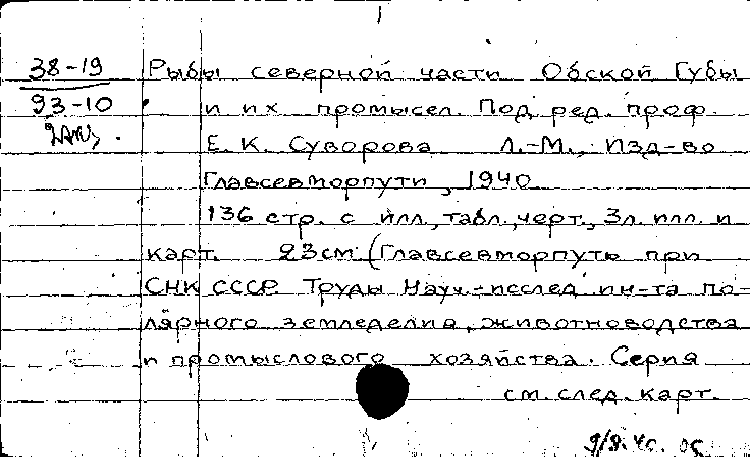 1
38-19 Рыбы северной части Обской Губы
93-10 и их промысел. Под ред. проф.
Е. К. Суворова Л.-М., Изд-во
Главсевморпути, 1940
136 стр. с илл., табл., черт., 3л. илл. и
карт. 23см. (Главсевморпуть при
СНК СССР. Труды Науч.-исслед. ин-та по-
лярного земледелия, животноводства
и промыслового хозяйства. Серия
см. след. карт.